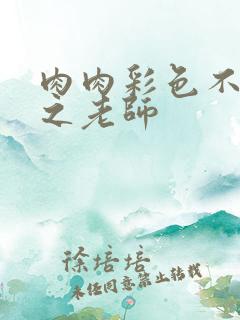 肉肉彩色不
之老師
徐培培
未经同意禁止转载